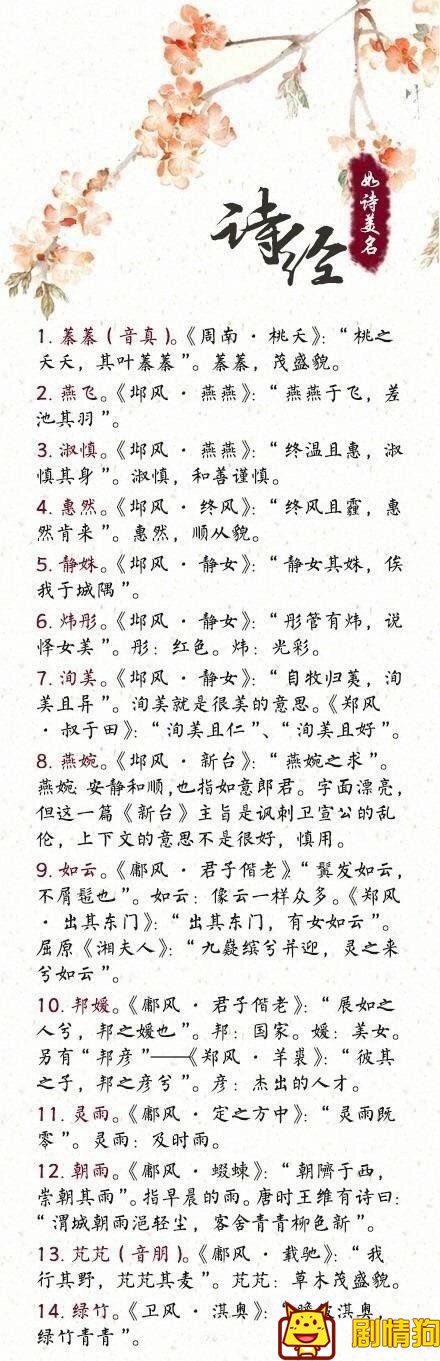 诗经
如诗美名
1. 蓁蓁（音真）。《周南·桃夭》：“桃之
夭夭，其叶蓁蓁”。蓁蓁，茂盛貌。
2. 燕飞。《邶风·燕燕》：“燕燕于飞，差
池其羽”。
3. 淑慎。《邶风·燕燕》：“终温且惠，淑
慎其身”。淑慎，和善谨慎。
4. 惠然。《邶风·终风》：“终风且霾，惠
然肯来”。惠然，顺从貌。
5. 静姝。《邶风·静女》：“静女其姝，俟
我于城隅”。
6. 炜彤。《邶风·静女》：“彤管有炜，说
怿女美”。彤：红色。炜：光彩。
7. 洵美。《邶风·静女》：“自牧归荑，洵
美且异”。洵美就是很美的意思。《郑风
·叔于田》：“洵美且仁”、“洵美且好”。
8. 燕婉。《邶风·新台》：“燕婉之求”。
燕婉:安静和顺,也指如意郎君。字面漂亮，
但这一篇《新台》主旨是讽刺卫宣公的乱
伦，上下文的意思不是很好，慎用。
9. 如云。《鄘风·君子偕老》“鬒发如云，
不屑髢也”。如云：像云一样众多。《郑风
·出其东门》：“出其东门，有女如云”。
屈原《湘夫人》：“九嶷缤兮并迎，灵之来
兮如云”。
10. 邦媛。《鄘风·君子偕老》：“展如之
人兮，邦之媛也”。邦：国家。媛：美女。
另有“邦彦”——《郑风·羊裘》：“彼其
之子，邦之彦兮”。彦：杰出的人才。
11. 灵雨。《鄘风·定之方中》：“灵雨既
零”。灵雨：及时雨。
12. 朝雨。《鄘风·蝃蝀》：“朝隮于西，
崇朝其雨”。指早晨的雨。唐时王维有诗曰：
“渭城朝雨浥轻尘，客舍青青柳色新”。
13. 芃芃（音朋）。《鄘风·载驰》：“我
行其野，芃芃其麦”。芃芃：草木茂盛貌。
14. 绿竹。《卫风·淇奥》：“瞻彼淇奥，
绿竹青青”。
剧情狗